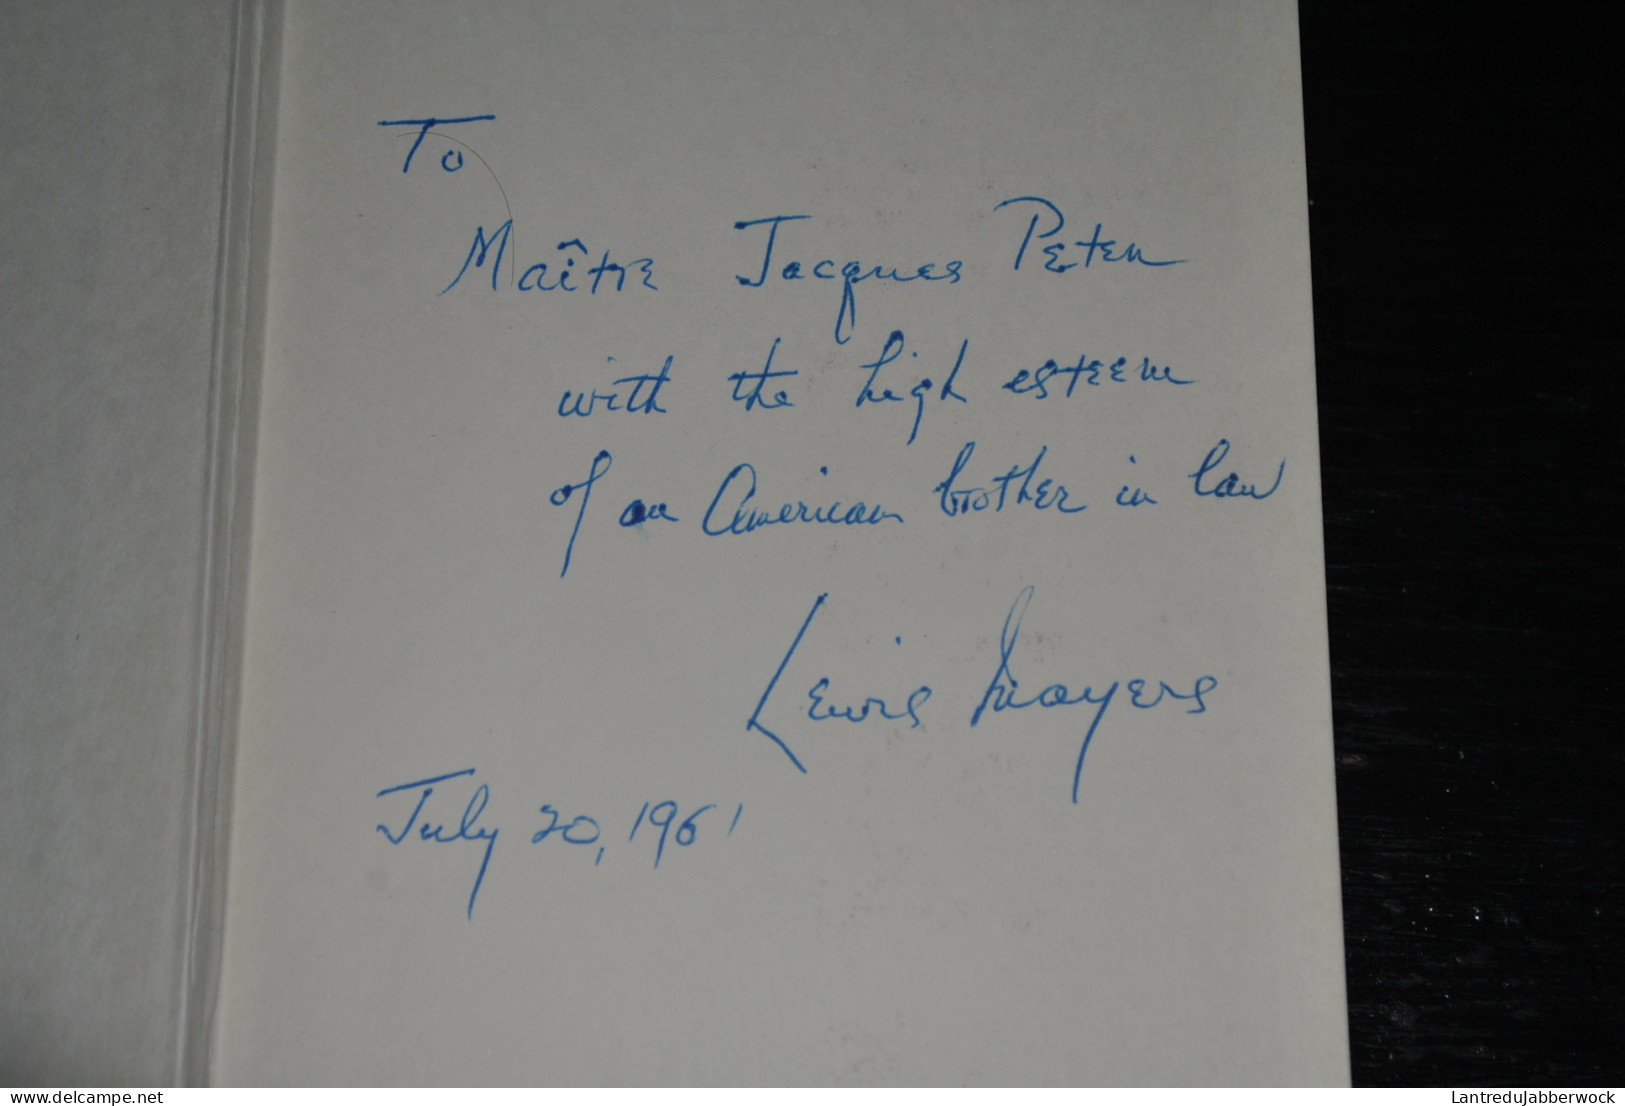 To
Maître Jacques Peten
with the high esteem
of an American brother in law
Lewis Mayers
July 20, 1961
delcampe.net
LantreduJabberwock